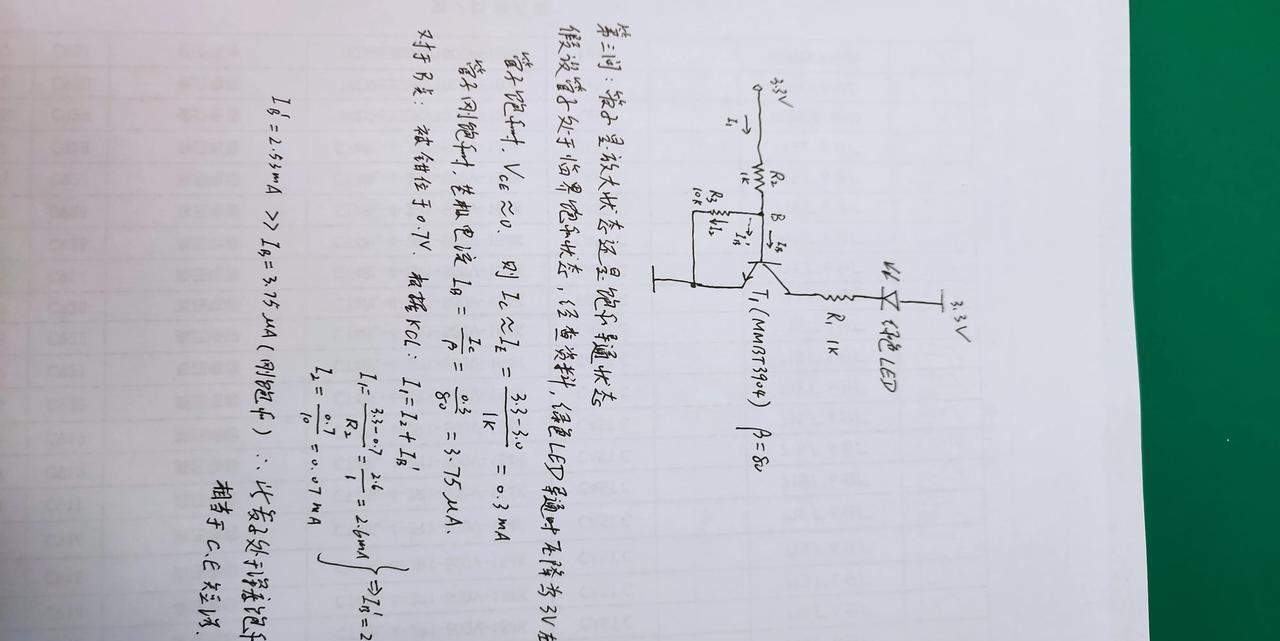 3.3V
I₁
R₂
1K
B
I_B
I_B'
R₃
10K
I₂
3.3V
绿色LED
R₁ 1K
T₁(MMBT3904) β=80
第三问：管子是放大状态还是饱和导通状态
假设管子处于临界饱和状态，经查资料，绿色LED导通时压降为3V左
管子饱和时，V_CE≈0. 则 I_C≈I_E = (3.3-3.0)/1K = 0.3mA
管子刚饱和时，基极电流 I_B = I_C/β = 0.3/80 = 3.75μA.
对于B点：被钳位于0.7V. 根据KCL: I₁=I₂+I_B'
I₁ = (3.3-0.7)/R₂ = 2.6/1 = 2.6mA
I₂ = 0.7/10 = 0.07mA
} ⇒ I_B'=2
I_B'=2.53mA >> I_B=3.75μA(刚饱和) ∴ 处于深度饱和
相当于C.E短路.